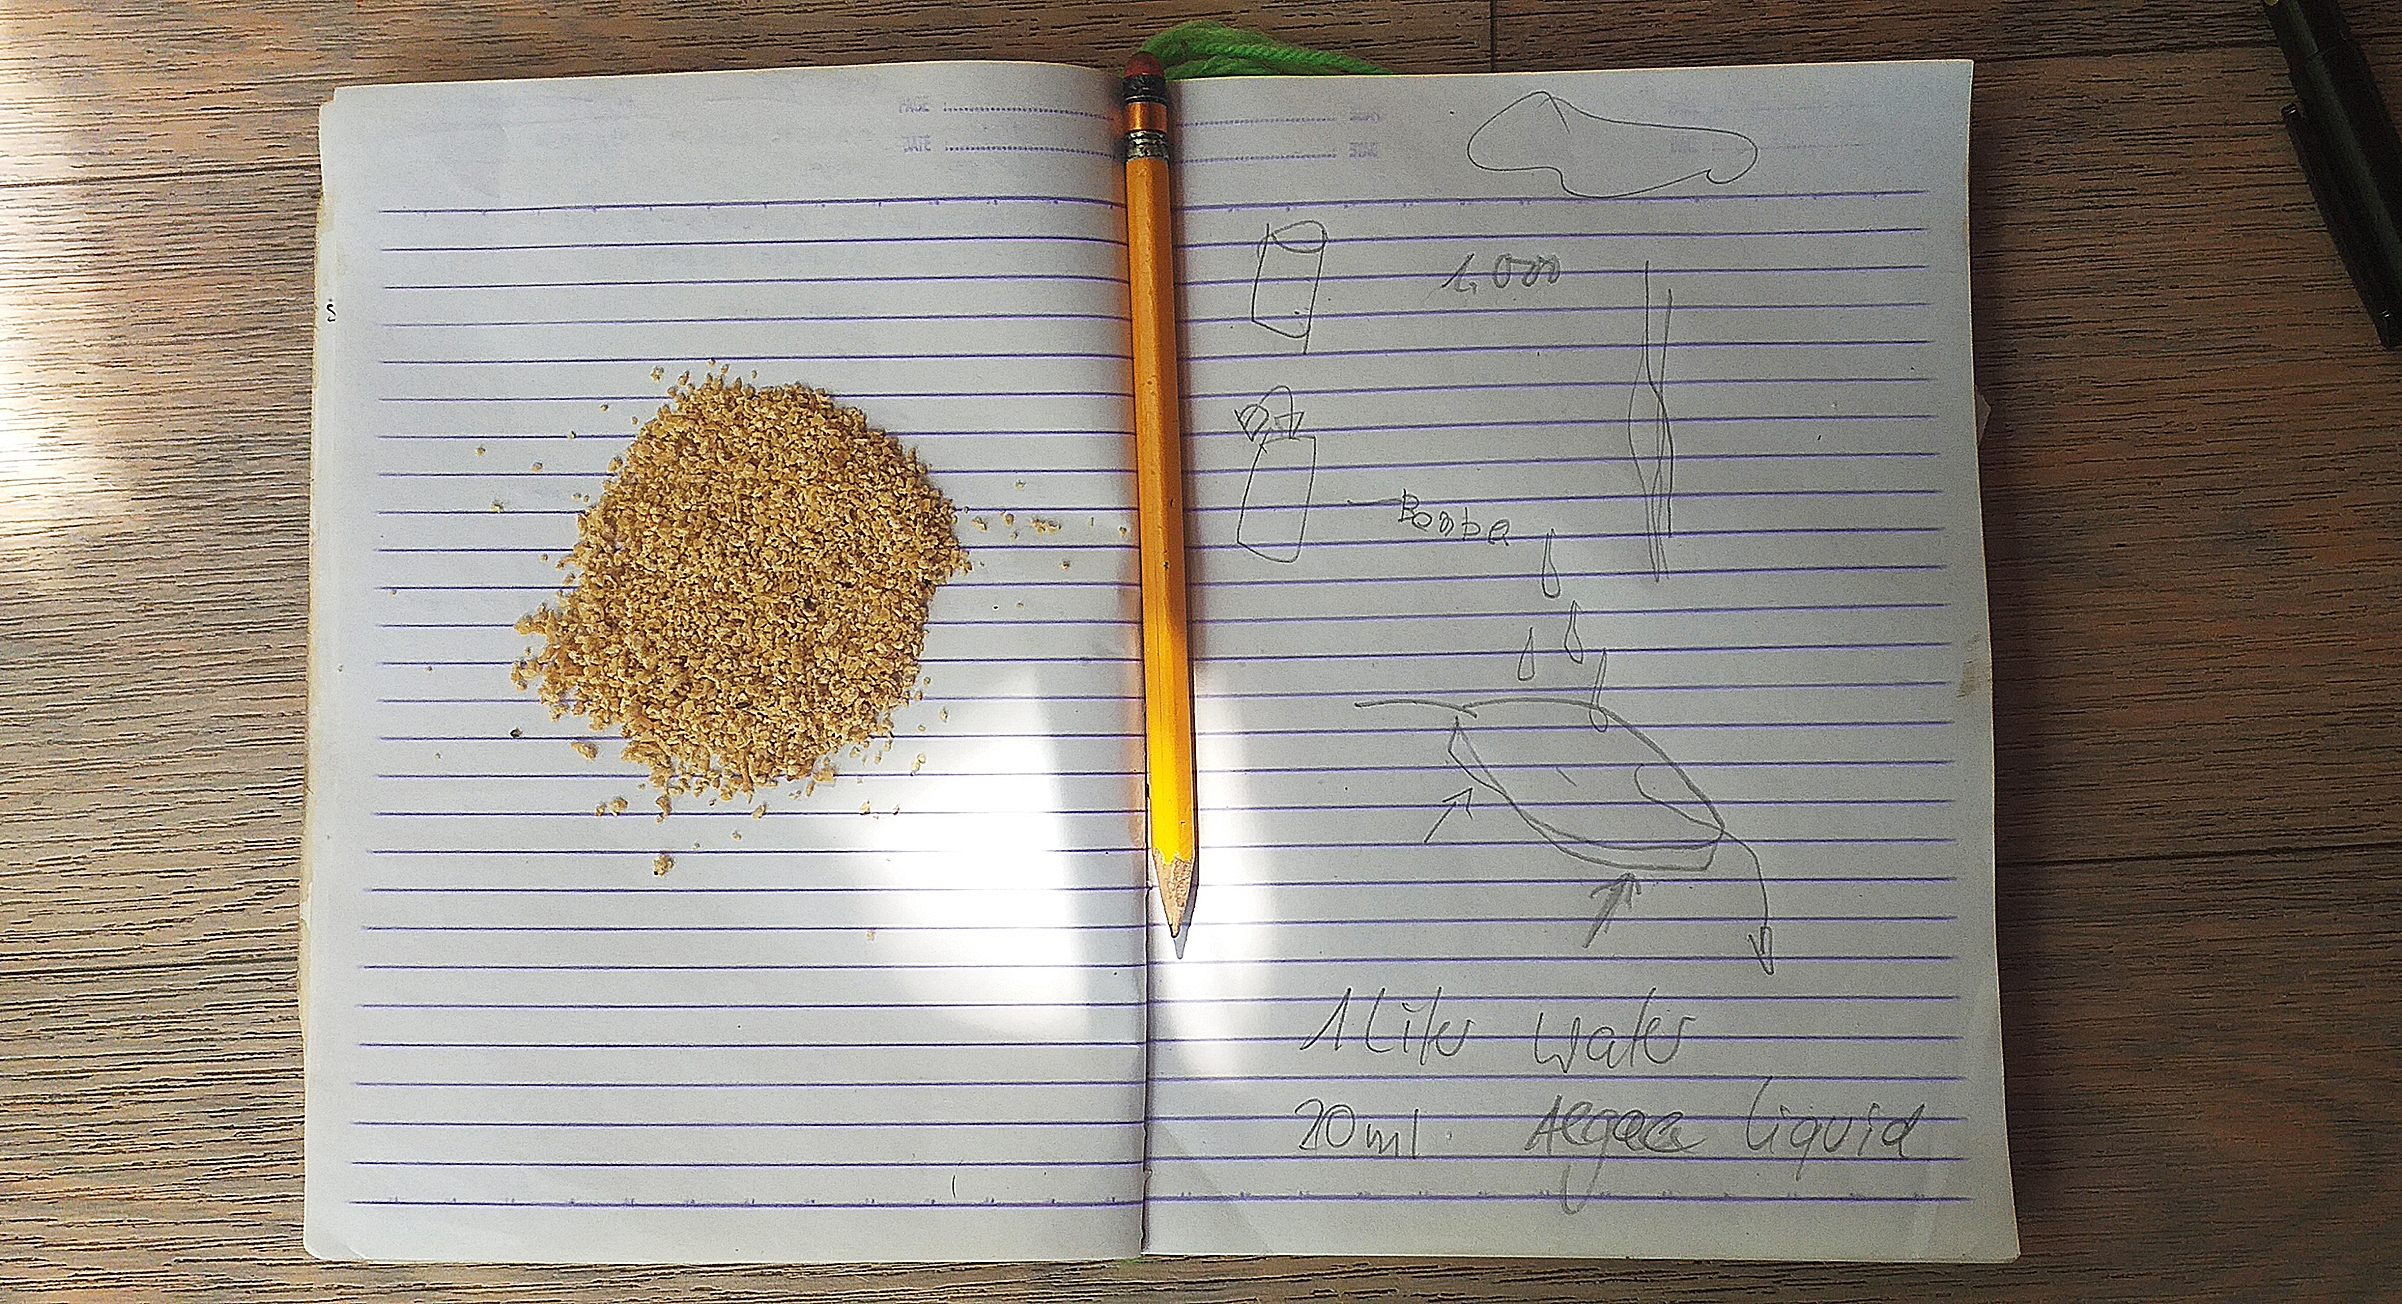 PAGE
DATE
1,000
Bomba
1 Liter water
20ml. Algae liquid